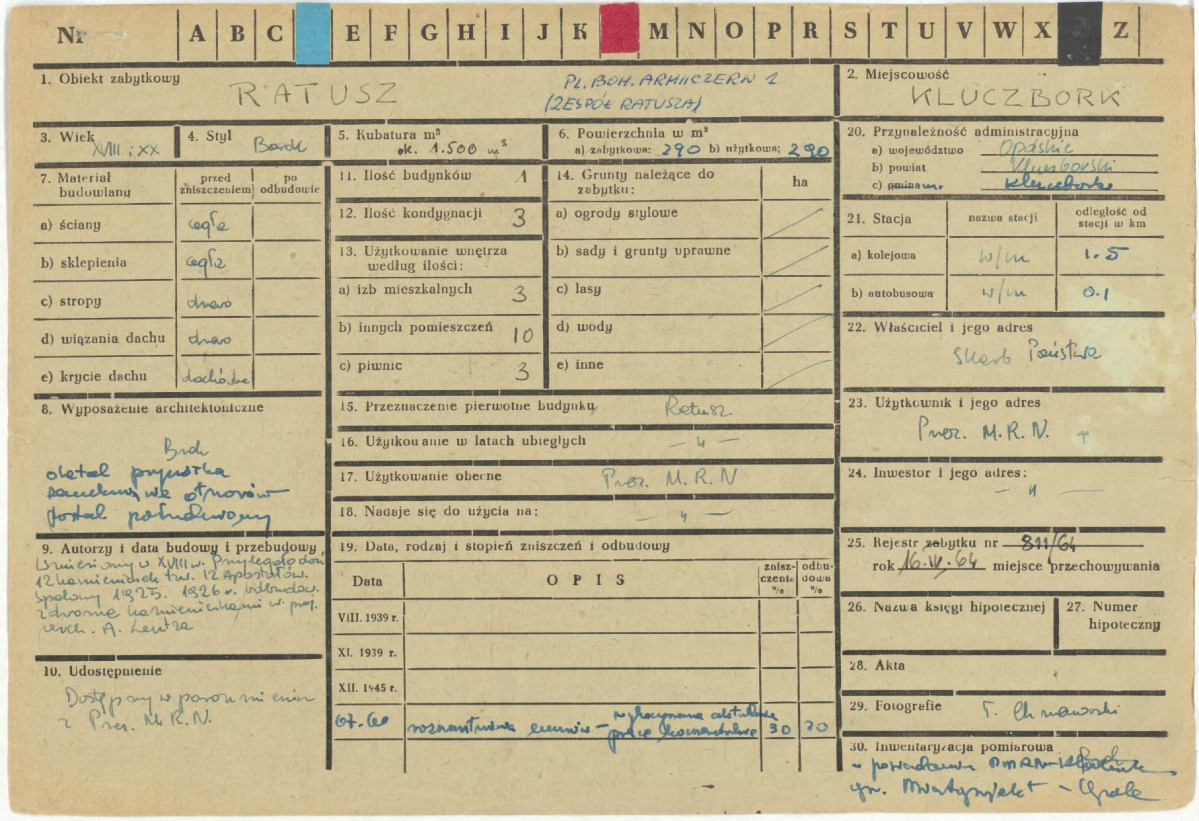 Nr A B C E F G H I J K M N O P R S T U V W X Z
1. Obiekt zabytkowy
RATUSZ
PL. BOH. ARMII CZERW 1
(ZESPÓŁ RATUSZA)
2. Miejscowość
KLUCZBORK
3. Wiek
XVIII i XX
4. Styl Barok
5. Kubatura m³
ok. 1.500 m³
6. Powierzchnia w m²
a) zabytkowa: 290 b) użytkowa: 290
20. Przynależność administracyjna
a) województwo Opolskie
b) powiat Kluczborski
c) gmina m. Kluczbork
7. Materiał budowlany
przed zniszczeniem
po odbudowie
a) ściany cegła
b) sklepienia cegła
c) stropy drewno
d) wiązania dachu drewno
e) krycie dachu dachówka
11. Ilość budynków 1
12. Ilość kondygnacji 3
13. Użytkowanie wnętrza
według ilości:
a) izb mieszkalnych 3
b) innych pomieszczeń 10
c) piwnic 3
14. Grunty należące do
zabytku:
ha
a) ogrody stylowe
b) sady i grunty uprawne
c) lasy
d) wody
e) inne
21. Stacja
nazwa stacji
odległość od
stacji w km
a) kolejowa w/m 1.5
b) autobusowa w/m 0.1
22. Właściciel i jego adres
Skarb Państwa
8. Wyposażenie architektoniczne
Brak
detal
otworów
portal południowy
15. Przeznaczenie pierwotne budynku Ratusz
16. Użytkowanie w latach ubiegłych — „ —
17. Użytkowanie obecne Prez. M.R.N
18. Nadaje się do użycia na: — „ —
23. Użytkownik i jego adres
Prez. M.R.N.
24. Inwestor i jego adres:
— „ —
9. Autorzy i data budowy i przebudowy
Wzniesiony w XVIII w. Przylegało doń
12 kamieniczek tzw. 12 Apostołów.
Spalony 1925. 1926 r. odbudow.
z dwoma kamieniczkami w proj.
arch. A.
10. Udostępnienie
Dostępny w porozumieniu
z Prez. M.R.N.
19. Data, rodzaj i stopień zniszczeń i odbudowy
Data
OPIS
zniszczenia %
odbudowa %
VIII. 1939 r.
XI. 1939 r.
XII. 1945 r.
prace 30 20
25. Rejestr zabytku nr 811/64
rok 16.IV.64 miejsce przechowywania
26. Nazwa księgi hipotecznej
27. Numer
hipoteczny
28. Akta
29. Fotografie
30. Inwentaryzacja pomiarowa